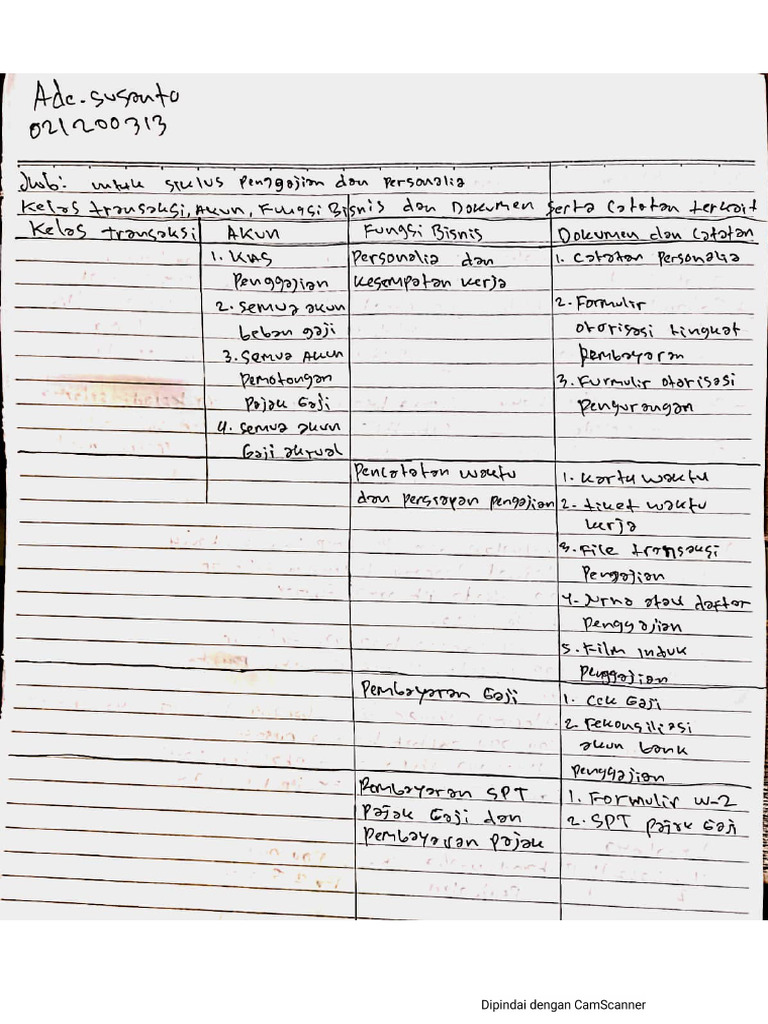 Ade. Susanto
021200313
Jwb: untuk siklus penggajian dan Personalia
Kelas transaksi, Akun, Fungsi Bisnis dan Dokumen serta Catatan terkait
Kelas transaksi
AKUN
1. KAS
Penggajian
2. Semua akun
beban gaji
3. Semua AKUN
Pemotongan
Pajak Gaji
4. Semua akun
Gaji akrual
Fungsi Bisnis
Personalia dan
Kesempatan kerja
Pencatatan waktu
dan persiapan pengajian
Pembayaran Gaji
Pembayaran SPT
Pajak Gaji dan
Pembayaran Pajak
Dokumen dan Catatan
1. Catatan Personalia
2. Formulir
otorisasi tingkat
pembayaran
3. Formulir otorisasi
pengurangan
1. Kartu waktu
2. tiket waktu
kerja
3. File transaksi
Pengajian
4. atau daftar
penggajian
5. Film induk
penggajian
1. Cek Gaji
2. rekonsiliasi
akun bank
penggajian
1. Formulir W-2
2. SPT pajak Gaji
Dipindai dengan CamScanner